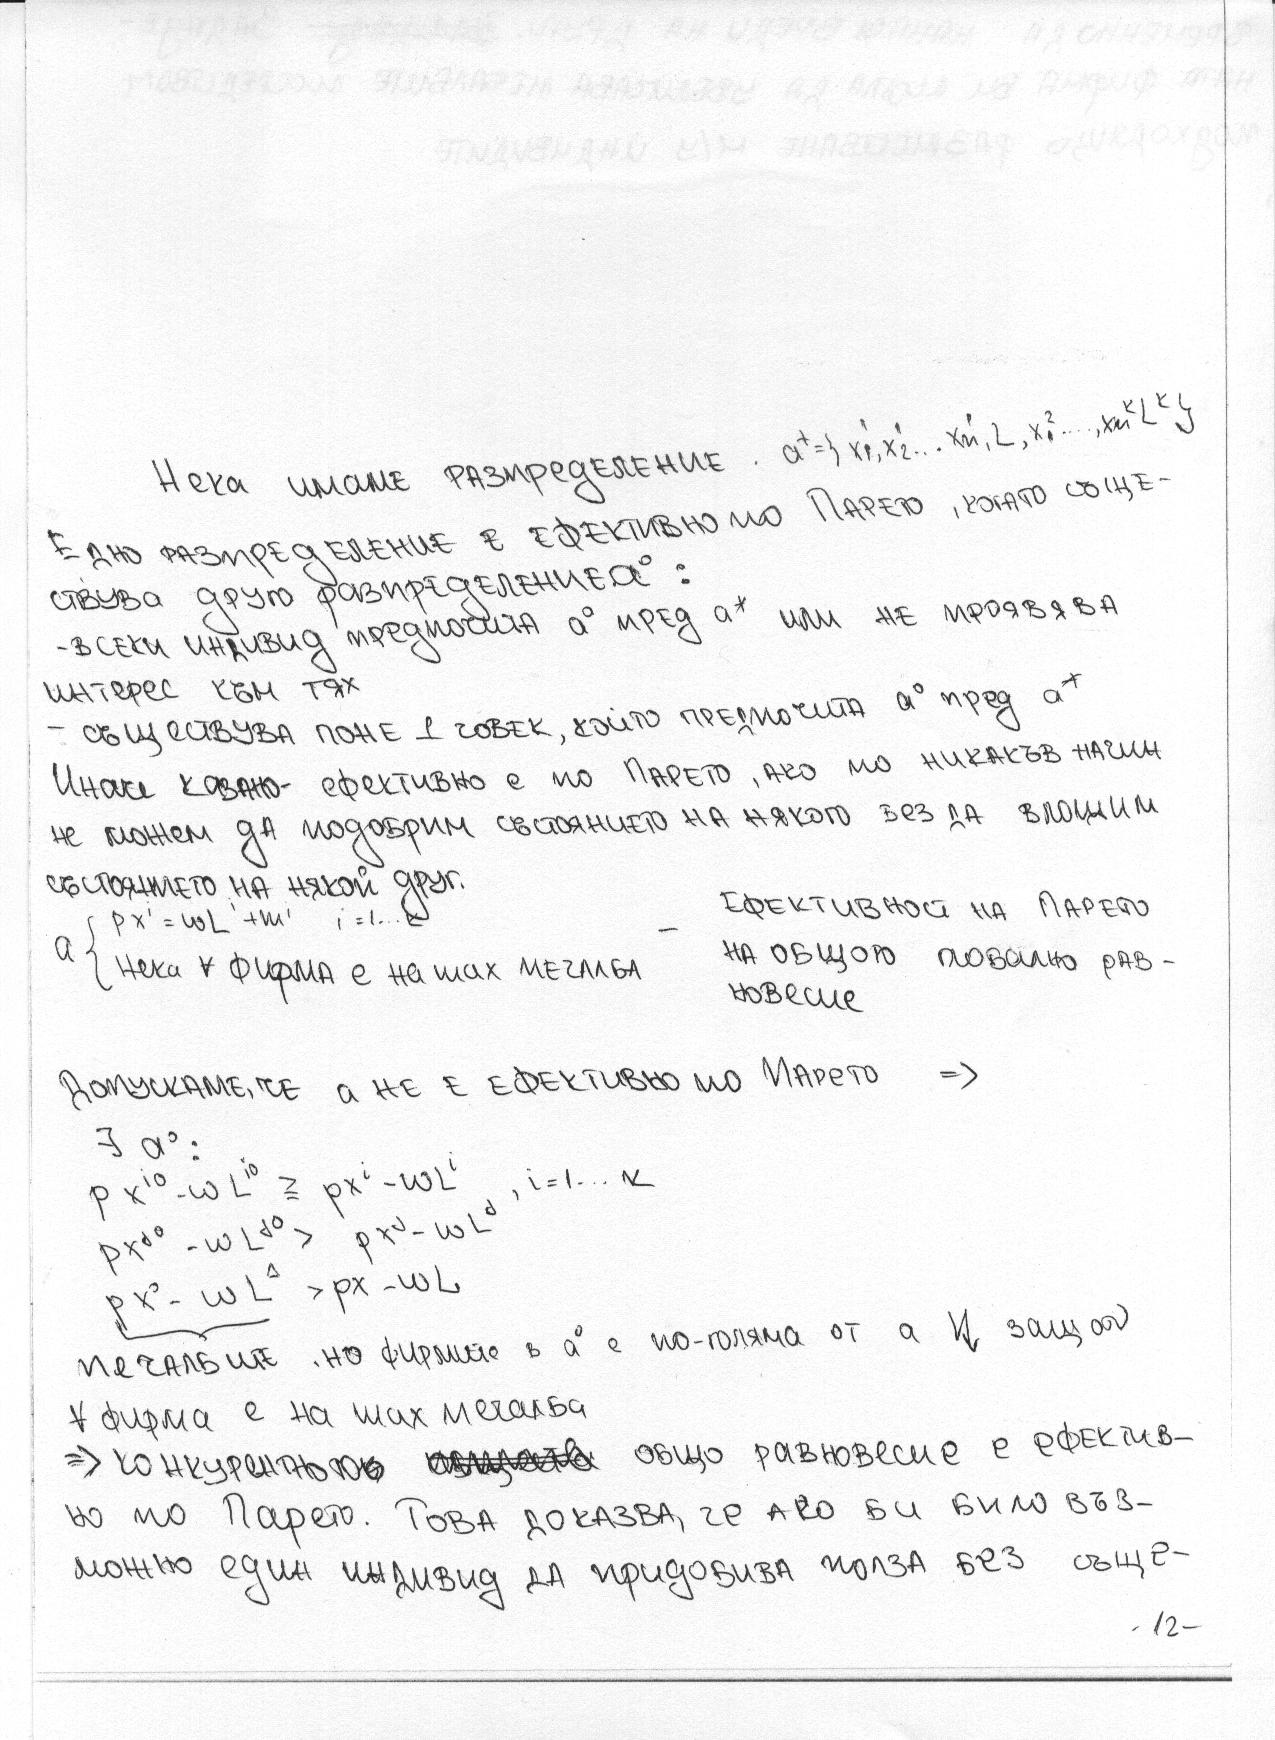 Нека имаме разпределение . a* = { x₁¹, x₂¹ ... xn¹, L, x₁² ..., xn^k L^k }
Едно разпределение е ефективно по Парето, когато съще-
ствува друго разпределение a⁰ :
- всеки индивид предпочита a⁰ пред a* или не проявява
интерес към тях
- съществува поне 1 човек, който предпочита a⁰ пред a*
Инак казано - ефективно е по Парето, ако по никакъв начин
не можем да подобрим състоянието на някого без да влошим
състоянието на някой друг.
a { px^i = wL^i + m^i i = 1 ... k
Нека ∀ фирма е на max печалба
– Ефективност на Парето
на общото равно рав-
новесие
Допускаме, че a не е ефективно по Парето =>
∃ a⁰ :
px^i0 - wL^i0 ≥ px^i - wL^i , i = 1 ... k
px^j0 - wL^j0 > px^j - wL^j
px⁰ - wL⁰ > px - wL
печалбите на фирмите в a⁰ е по-голяма от a защото
∀ фирма е на max печалба
=> конкурентното общо равновесие е ефектив-
но по Парето. Това доказва, че ако би било въз-
можно един индивид да придобива полза без съще-
- 12 -